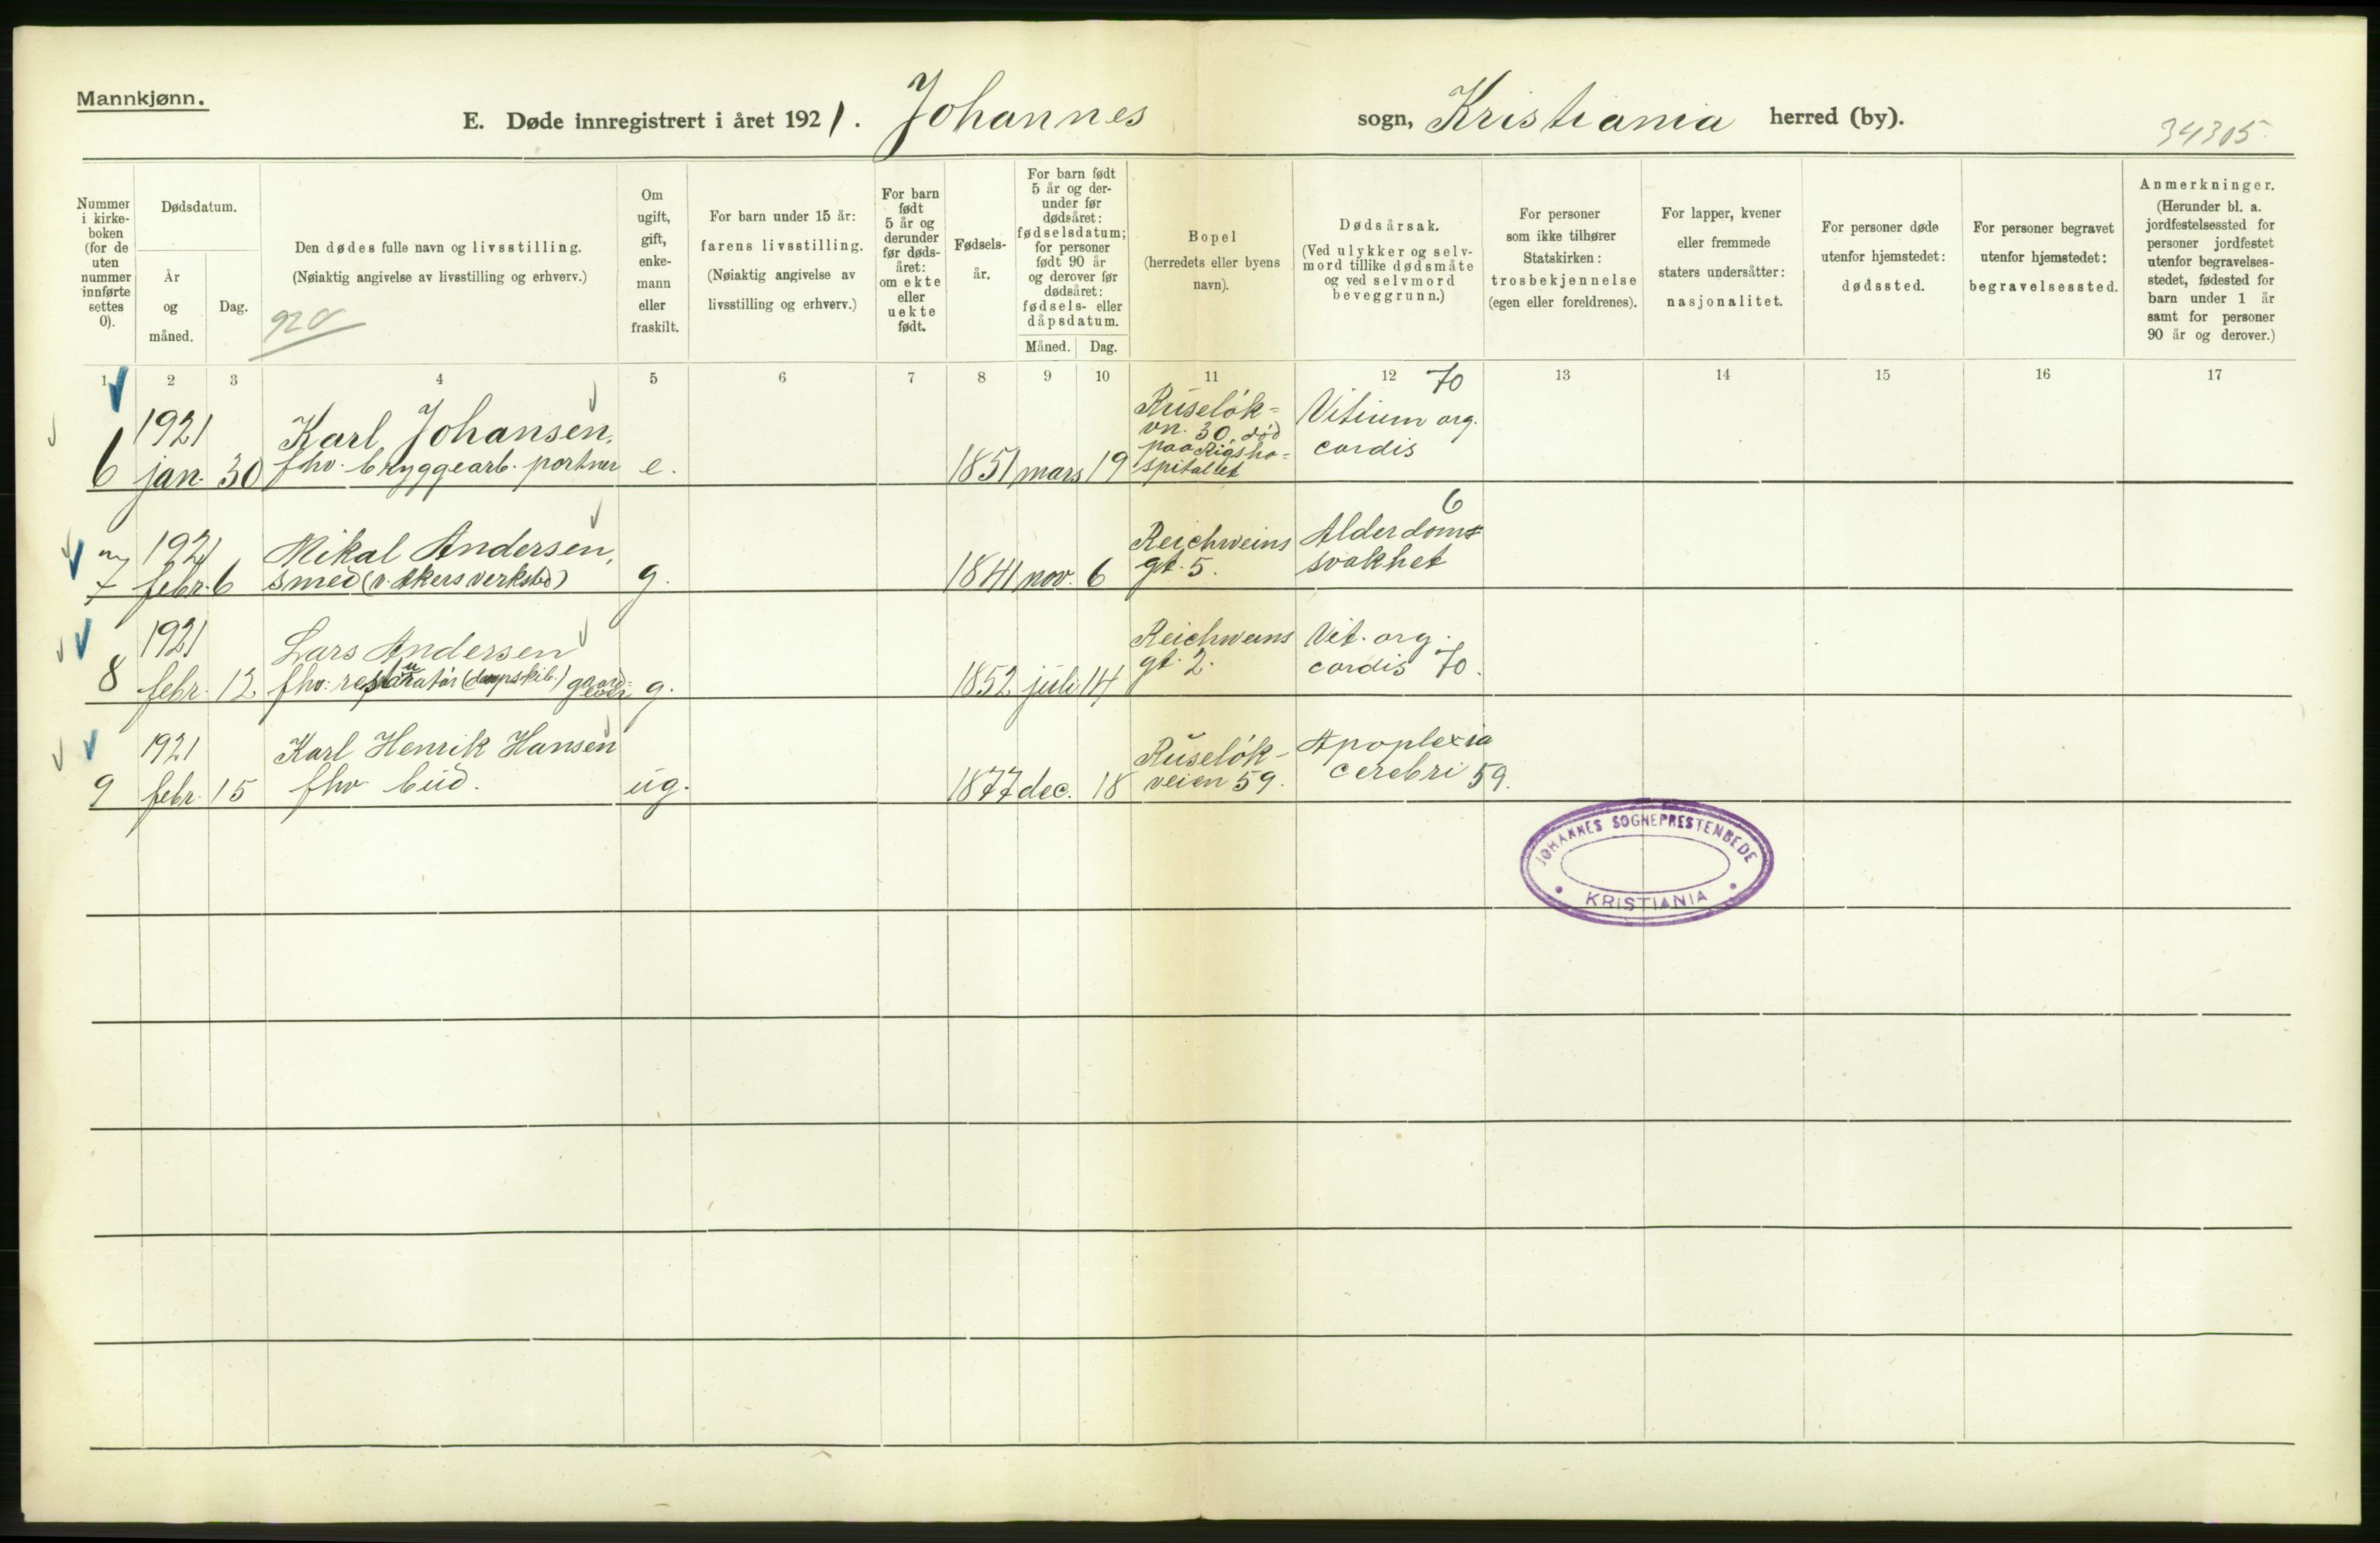 Mannkjønn.
E. Døde innregistrert i året 1921. Johannes sogn, Kristiania herred (by).
34305
Nummer i kirke-boken (for de uten nummer innførte settes 0).
Dødsdatum.
År og måned.
Dag.
Den dødes fulle navn og livsstilling.
(Nøiaktig angivelse av livsstilling og erhverv.)
Om ugift, gift, enke-mann eller fraskilt.
For barn under 15 år:
farens livsstilling.
(Nøiaktig angivelse av livsstilling og erhverv.)
For barn født 5 år og derunder før døds-året: om ekte eller uekte født.
Fødsels-år.
For barn født 5 år og der-under før dødsåret: fødselsdatum; for personer født 90 år og derover før dødsåret: fødsels- eller dåpsdatum.
Måned.
Dag.
Bopel
(herredets eller byens navn).
Dødsårsak.
(Ved ulykker og selv-mord tillike dødsmåte og ved selvmord beveggrunn.)
For personer som ikke tilhører Statskirken: trosbekjennelse (egen eller foreldrenes).
For lapper, kvener eller fremmede staters undersåtter: nasjonalitet.
For personer døde utenfor hjemstedet: dødssted.
For personer begravet utenfor hjemstedet: begravelsessted.
Anmerkninger.
(Herunder bl. a. jordfestelsessted for personer jordfestet utenfor begravelses-stedet, fødested for barn under 1 år samt for personer 90 år og derover.)
1 2 3 4 5 6 7 8 9 10 11 12 13 14 15 16 17
70
6 1921 jan. 30 Karl Johansen, fhv. bryggearb. portner e. 1851 mars 19 Ruseløk-vn. 30, død paa Rigsho-spitallet Vitium org. cordis
6
7 1921 febr. 6 Mikal Andersen, smed (v. Akers verksted) g. 1841 nov. 6 Reichweins gt. 5. Alderdoms svakhet
8 1921 febr. 12 Lars Andersen fhv. g. 1852 juli 14 Reichweins gt. 2. Vit. org. cordis 70.
9 1921 febr. 15 Karl Henrik Hansen fhv bud. ug. 1877 dec. 18 Ruseløk-veien 59. Apoplexia cerebri 59.
JOHANNES SOGNEPRESTEMBEDE
KRISTIANIA